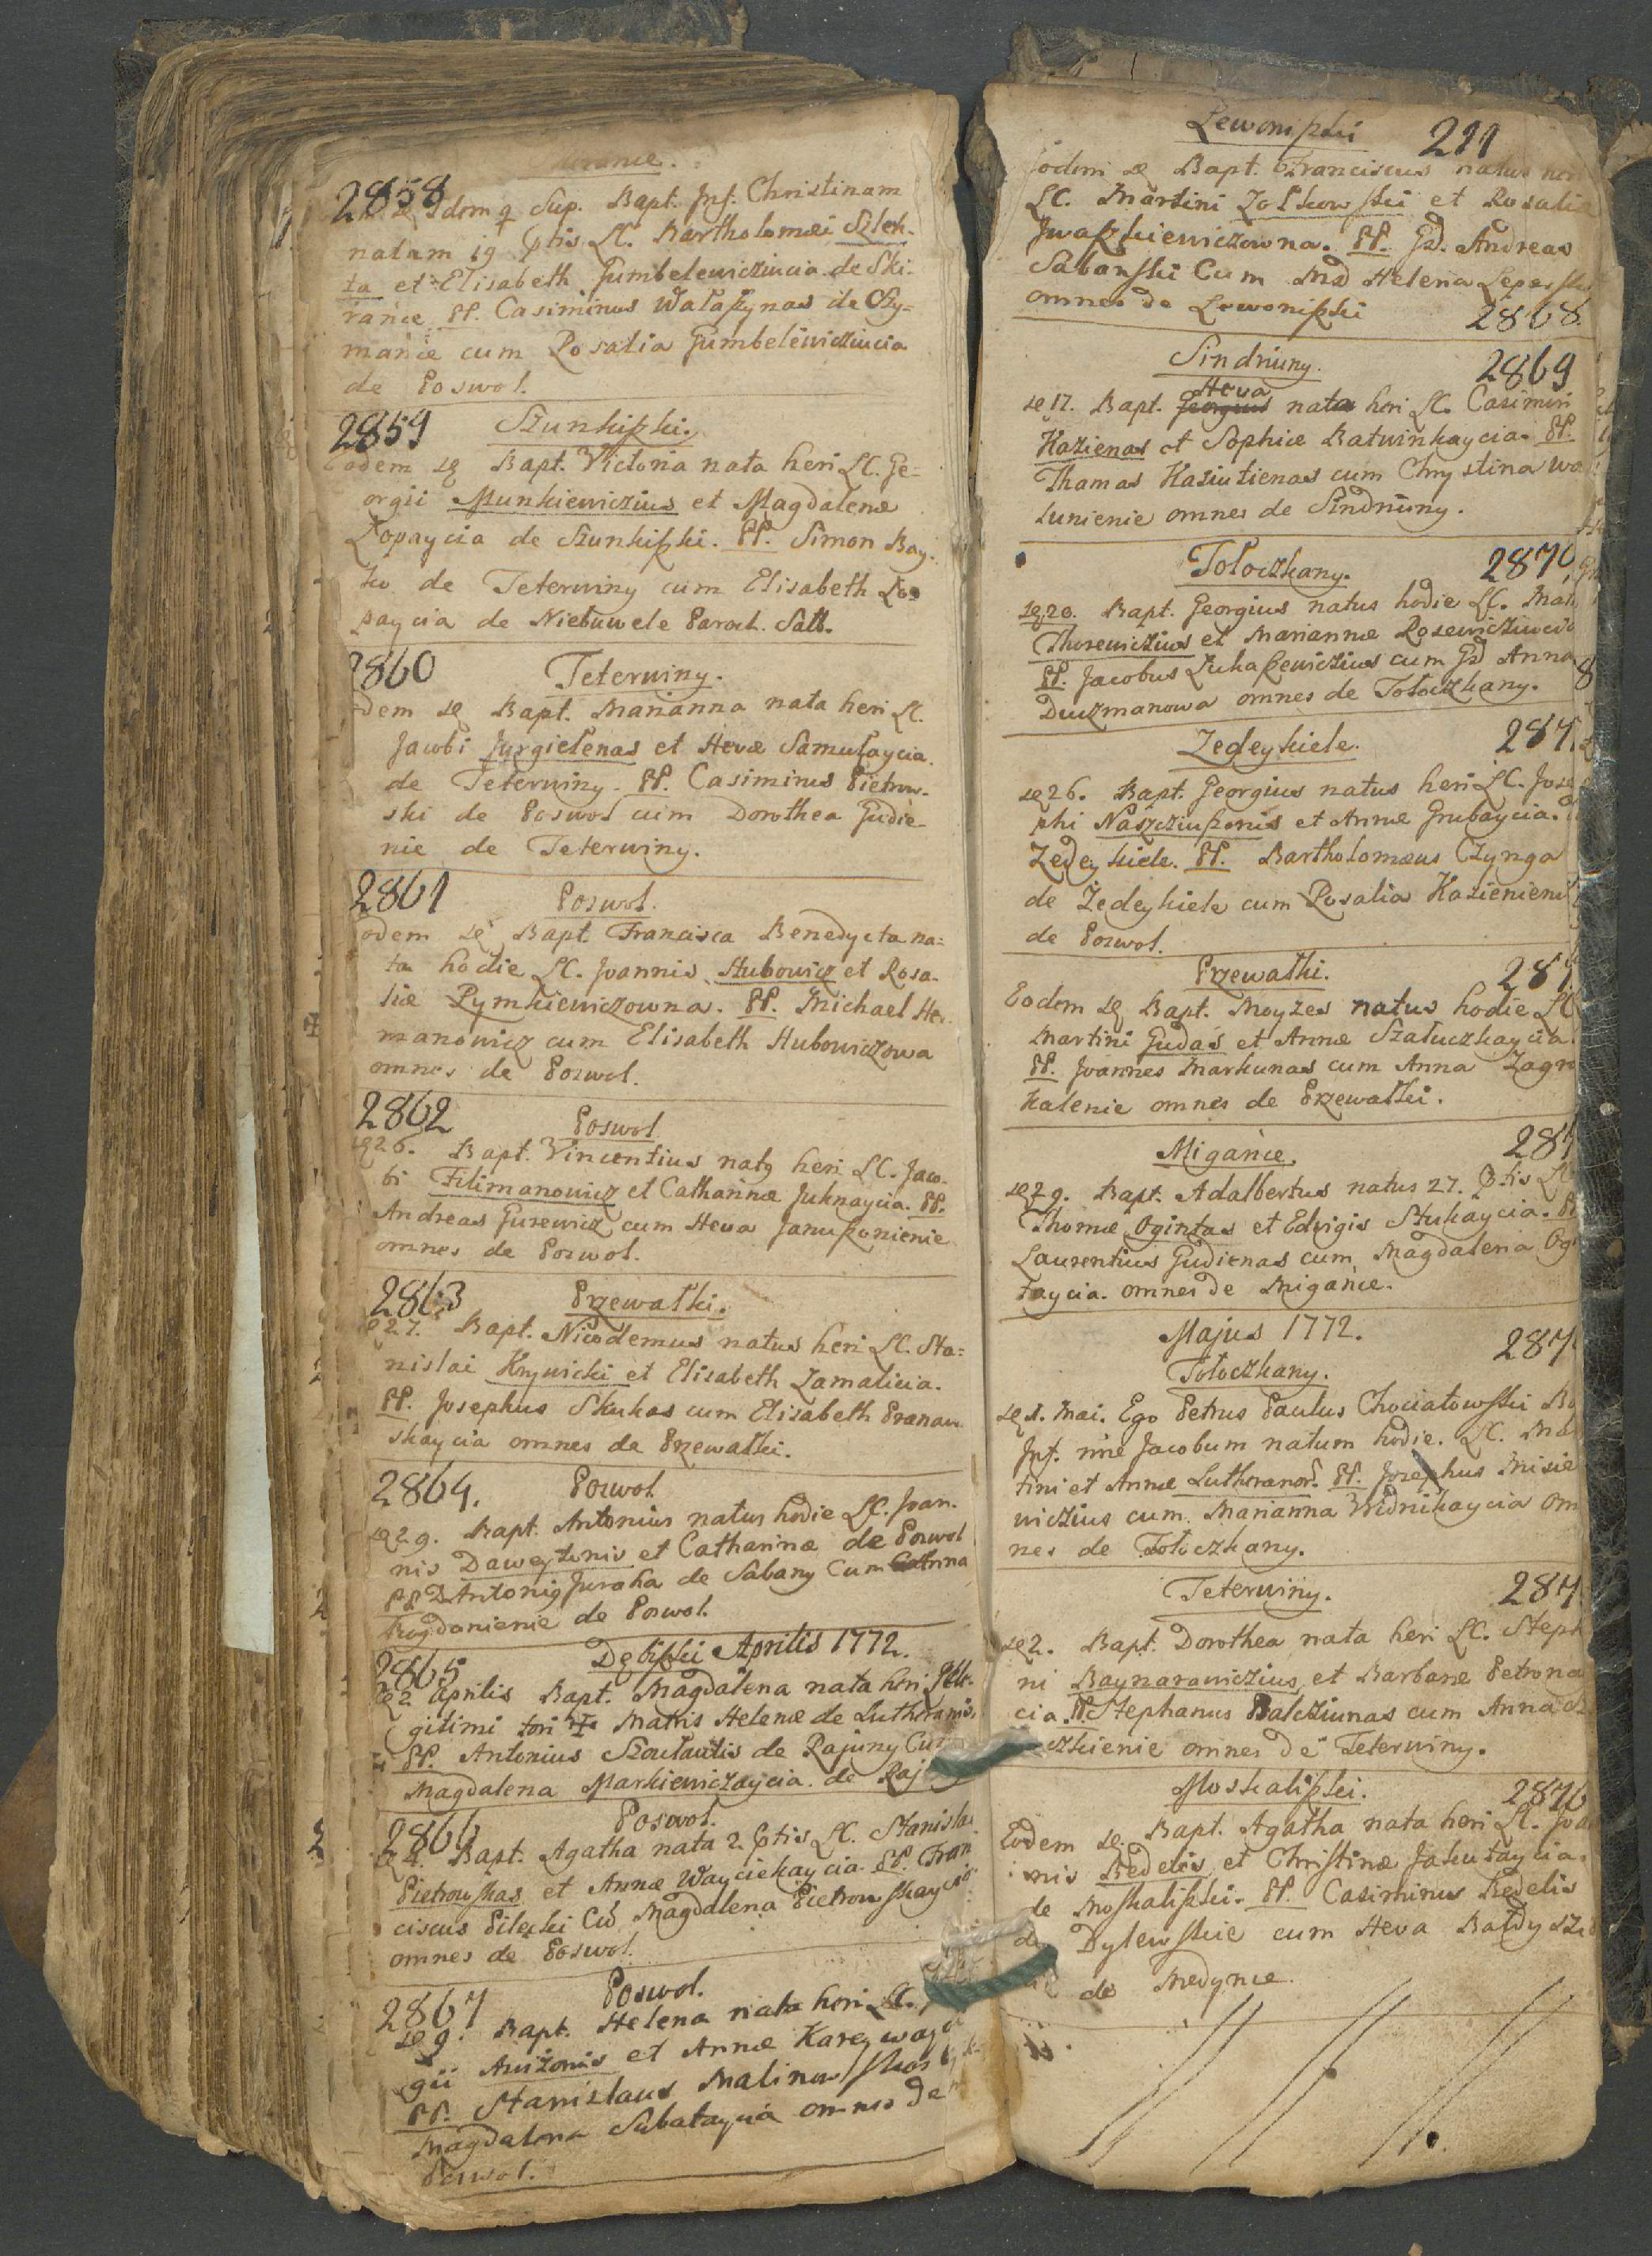 2858
Idem q Sup. Bapt. Inf. Christinam
natam 19 Eptis LC. Bartholomæi Szlek-
ta et Elisabeth Gumbelewiczincia de Ski-
rańce PP. Casimirus Wałaszynas de Szy-
mańce cum Rosalia Gumbelewiczincia
de Poswol.
2859 Szunkiszki.
Eodem se Bapt. Victoria nata heri LC. Ge-
orgii Munkiewiczius et Magdalenæ
Łopaycia de Szunkiszki. PP. Simon Bay-
ko de Teterwiny cum Elisabeth Ło-
paycia de Niebuwele Paroch. Satt.
2860 Teterwiny.
Eodem se Bapt. Marianna nata heri LC.
Jacobi Jurgielenas et Hevæ Samułaycia
de Teterwiny. PP. Casimirus Pietrow-
ski de Poswol cum Dorothea Gudie-
nie de Teterwiny.
2861 Poswol.
Eodem se Bapt Francisca Benedycta na-
ta hodie LC. Joannis Hubowicz et Rosa-
liæ Rymkiewiczowna. PP. Michael Her-
manowicz cum Elisabeth Hubowiczowa
omnes de Poswol.
2862 Poswol
se 26. Bapt. Vincentius natg heri LC. Jaco-
bi Filimanowicz et Catharinæ Juknaycia. PP.
Andreas Gurewicz cum Heva Januszonienie
omnes de Poswol.
2863 Przewałki.
se 27. Bapt. Nicodemus natus heri LC. Sta-
nislai Krywicki et Elisabeth Zamalicia.
PP. Josephus Skukas cum Elisabeth Pranaw-
skaycia omnes de Przewałki.
2864. Poswol
se 29. Bapt. Antonius natus hodie LC. Joan-
nis Daweytonis et Catharinæ de Poswol
PP D Antonig Juraha de Sabany Cum Anna
Bogdanienie de Poswol.
2865 Dębiszki Aprilis 1772.
se 2 Aprilis Bapt. Magdalena nata heri Ille-
gitimi tori Matris Helenæ de Lutheranis
PP. Antonius Szoulautis de Rajuny Cum
Magdalena Markiewiczaycia de Raj
2866 Poswol.
se 4. Bapt. Agatha nata 2 Eptis LC. Stanislai
Pietrowskas et Annæ Wayciekaycia PP. Fran-
ciscus Pilecki Cū Magdalena Pietrowskaycia
omnes de Poswol.
2867 Poswol.
se 9. Bapt. Helena nata heri LC.
gii Awizonis et Annæ Kareywa
PP. Stanislaus Malinowskas
Magdalena Subataycia omnes de
Poswol.
Lewoniszki 211
Eodem se Bapt. Franciscus natus heri
LC. Martini Zołkowski et Rosaliæ
Iwaszkiewiczowna. PP. Gd. Andreas
Sabanski Cum Md Helena
omnes de Lewoniszki 2868.
Sindriuny. 2869
Heva
se 17. Bapt. Georgius nata heri LC. Casimiri
Kazienas et Sophiæ Batwinkaycia. PP.
Thomas Kaziutienas cum Chrystina Wa
lunienie omnes de Sindriuny.
Tołoczkany. 2870
se 20. Bapt. Georgius natus hodie LC. Mat
Thorewiczius et Mariannæ
PP. Jacobus Łukaszewiczius cum Gd Anna
Duszmanowa omnes de Tołoczkany.
Zedeykiele. 287
se 26. Bapt. Georgius natus heri LC. Jose
phi Naszcziuszonis et Annæ Grubaycia.
Zedeykiele. PP. Bartholomæus Czynga
de Zedeykiele cum Rosalia Kazienienie
de Poswol.
Przewałki. 287
Eodem se Bapt. Moyzes natus hodie LC
Martini Gudas et Annæ Szałuczkaycia.
PP. Joannes Markunas cum Anna Zagra
kalenie omnes de Przewałki.
Migańce. 287
se 29. Bapt. Adalbertus natus 27. Eptis LC
Thomæ Ogintas et Edvigis Stukaycia. PP
Laurentius Gudienas cum Magdalena Ogi
taycia. omnes de Migańce.
Majus 1772.
Tołoczkany. 287
se 1. Mai. Ego Petrus Paulus Chociatowski Ba
Inf. nne Jacobum natum hodie. LC. Mar
tini et Annæ Lutheranor. PP. Josephus Misie
wiczius cum Marianna Widnikaycia om
nes de Tołoczkany.
Teterwiny. 287
se 2. Bapt. Dorothea nata heri LC. Steph
ni Baynarowiczius et Barbaræ Petrona
cia. PP Stephanus Balcziunas cum Anna
czkienie omnes de Teterwiny.
Moskaliszki. 2876
Eodem se. Bapt. Agatha nata heri LC. Joa
nnis Kedelis et Christinæ Jakutaycia.
de Moskaliszki. PP. Casimirus Kedelis
de Dylewskie cum Heva
de Medynie.